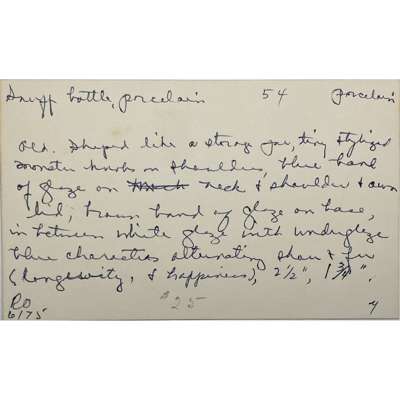 Snuff bottle, porcelain 54 porcelain
Old. Shaped like a storage jar, tiny stylized
monster knobs on shoulders, blue band
of glaze on neck & shoulder & own
lid; brown band of glaze on base,
in between white glaze with underglaze
blue characters alternating shou & fu
(longevity, & happiness), 2½", 1¾".
RO $25
6/75